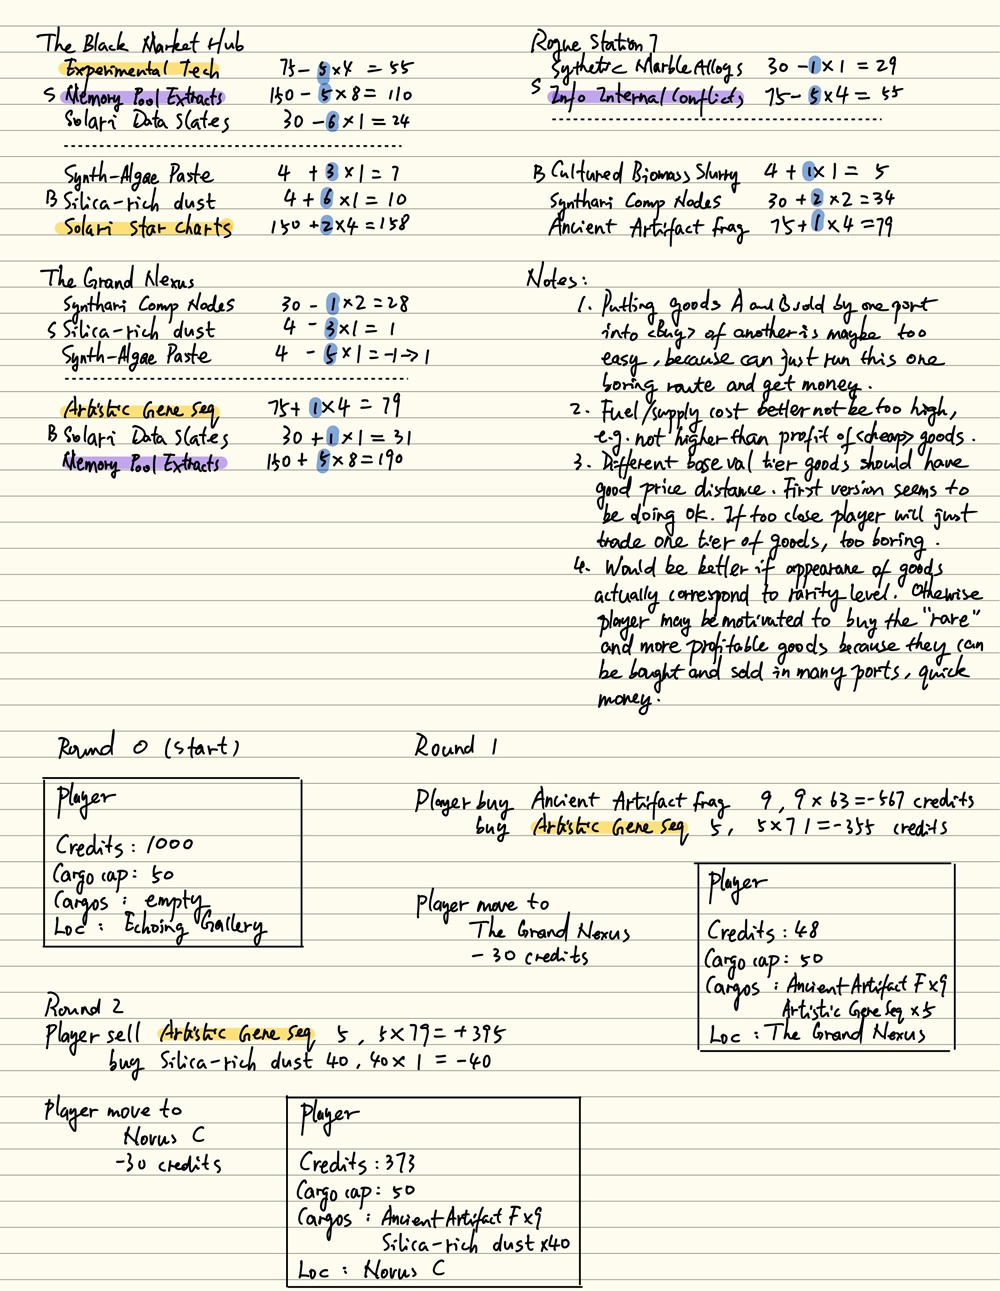 The Black Market Hub
Experimental Tech 75 - 5 x 4 = 55
S Memory Pool Extracts 150 - 5 x 8 = 110
Solari Data Slates 30 - 6 x 1 = 24
Synth-Algae Paste 4 + 3 x 1 = 7
B Silica-rich dust 4 + 6 x 1 = 10
Solari Star Charts 150 + 2 x 4 = 158
The Grand Nexus
Synthari Comp Nodes 30 - 1 x 2 = 28
S Silica-rich dust 4 - 3 x 1 = 1
Synth-Algae Paste 4 - 5 x 1 = -1 -> 1
Artistic Gene Seq 75 + 1 x 4 = 79
B Solari Data Slates 30 + 1 x 1 = 31
Memory Pool Extracts 150 + 5 x 8 = 190
Rogue Station 7
Sythetic Marble Alloys 30 - 1 x 1 = 29
S Info Internal Conflicts 75 - 5 x 4 = 55
B Cultured Biomass Slurry 4 + 1 x 1 = 5
Synthari Comp Nodes 30 + 2 x 2 = 34
Ancient Artifact frag 75 + 1 x 4 = 79
Notes:
1. Putting goods A and B sold by one port
into <Buy> of another is maybe too
easy, because can just run this one
boring route and get money.
2. Fuel/supply cost better not be too high,
e.g. not higher than profit of <cheap> goods.
3. Different base val tier goods should have
good price distance. First version seems to
be doing ok. If too close player will just
trade one tier of goods, too boring.
4. Would be better if appearane of goods
actually correspond to rarity level. Otherwise
player may be motivated to buy the "rare"
and more profitable goods because they can
be bought and sold in many ports, quick
money.
Round 0 (start)
Player
Credits: 1000
Cargo cap: 50
Cargos : empty
Loc : Echoing Gallery
Round 1
Player buy Ancient Artifact frag 9, 9 x 63 = -567 credits
buy Artistic Gene Seq 5, 5 x 71 = -355 credits
Player move to
The Grand Nexus
- 30 credits
Player
Credits: 48
Cargo cap: 50
Cargos : Ancient Artifact F x9
Artistic Gene Seq x5
Loc : The Grand Nexus
Round 2
Player sell Artistic Gene Seq 5, 5 x 79 = +395
buy Silica-rich dust 40, 40 x 1 = -40
Player move to
Novus C
-30 credits
Player
Credits: 373
Cargo cap: 50
Cargos : Ancient Artifact F x9
Silica-rich dust x40
Loc : Novus C